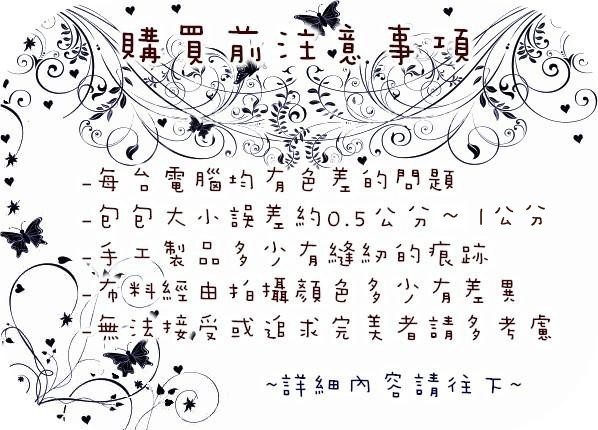 購買前注意事項
-每台電腦均有色差的問題
-包包大小誤差約0.5公分~1公分
-手工製品多少有縫紉的痕跡
-布料經由拍攝顏色多少有差異
-無法接受或追求完美者請多考慮
~詳細內容請往下~